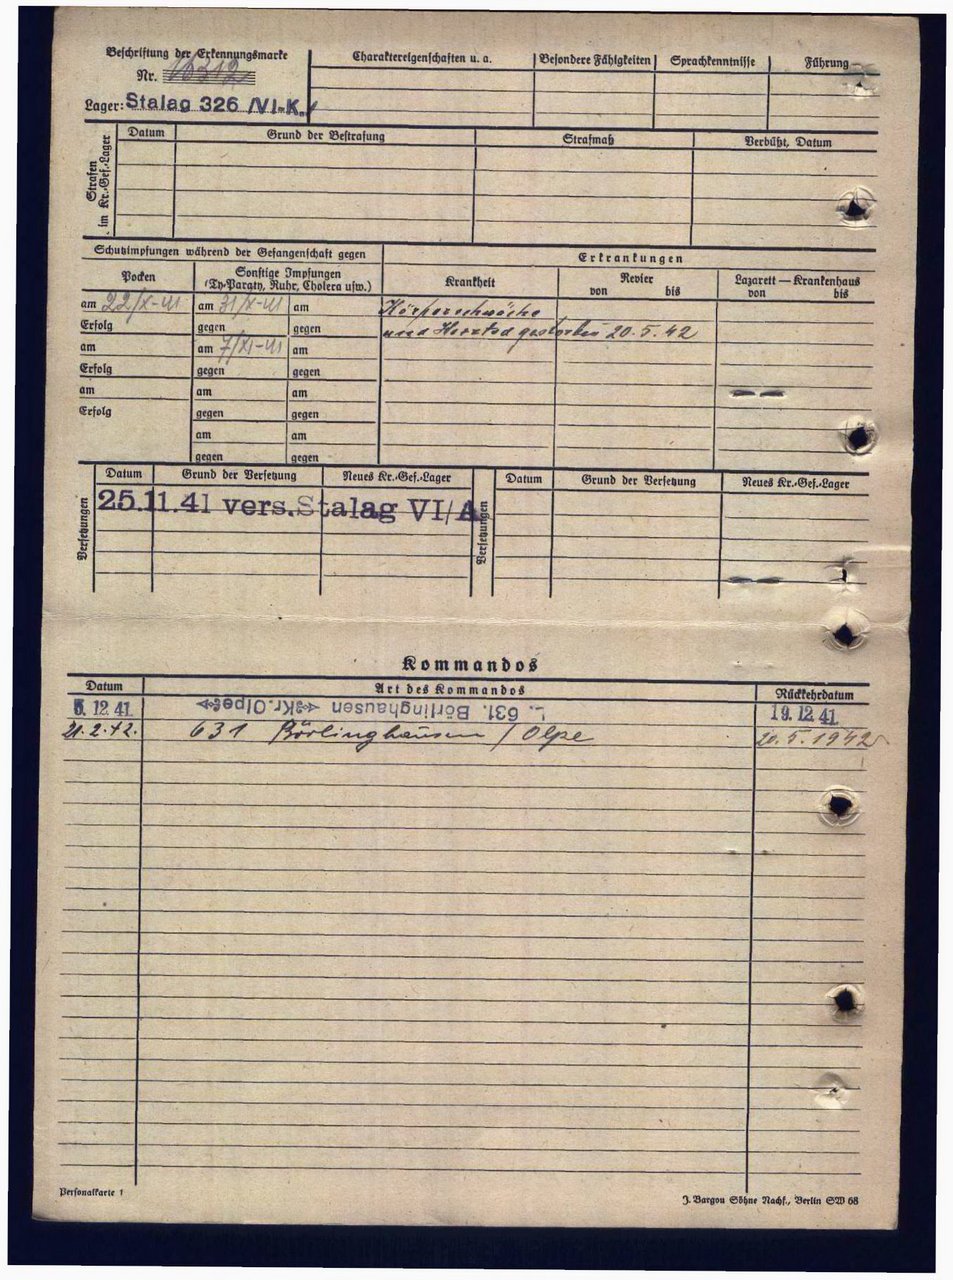 Beschriftung der Erkennungsmarke
Nr. 16312
Lager: Stalag 326 /VI-K.
Charaktereigenschaften u. a. Besondere Fähigkeiten Sprachkenntnisse Führung
Strafen im Kr.-Gef.-Lager
Datum Grund der Bestrafung Strafmaß Verbüßt, Datum
Schutzimpfungen während der Gefangenschaft gegen Erkrankungen
Pocken Sonstige Impfungen (Ty-Paraty, Ruhr, Cholera usw.) Krankheit Revier von bis Lazarett — Krankenhaus von bis
am 22/X-41 am 31/X-41 am Körperschwäche
Erfolg gegen gegen und Herztod gestorben 20.5.42
am am 7/XI-41 am
Erfolg gegen gegen
am am am
Erfolg gegen gegen
am am
gegen gegen
Versetzungen
Datum Grund der Versetzung Neues Kr.-Gef.-Lager
25.11.41 vers. Stalag VI/A
Versetzungen
Datum Grund der Versetzung Neues Kr.-Gef.-Lager
Kommandos
Datum Art des Kommandos Rückkehrdatum
5. 12. 41 L. 631. Börlinghausen Kr. Olpe 19. 12. 41
21.2.42. 631 Börlinghausen / Olpe 20.5.1942
Personalkarte 1 J. Bargou Söhne Nachf., Berlin SW 68